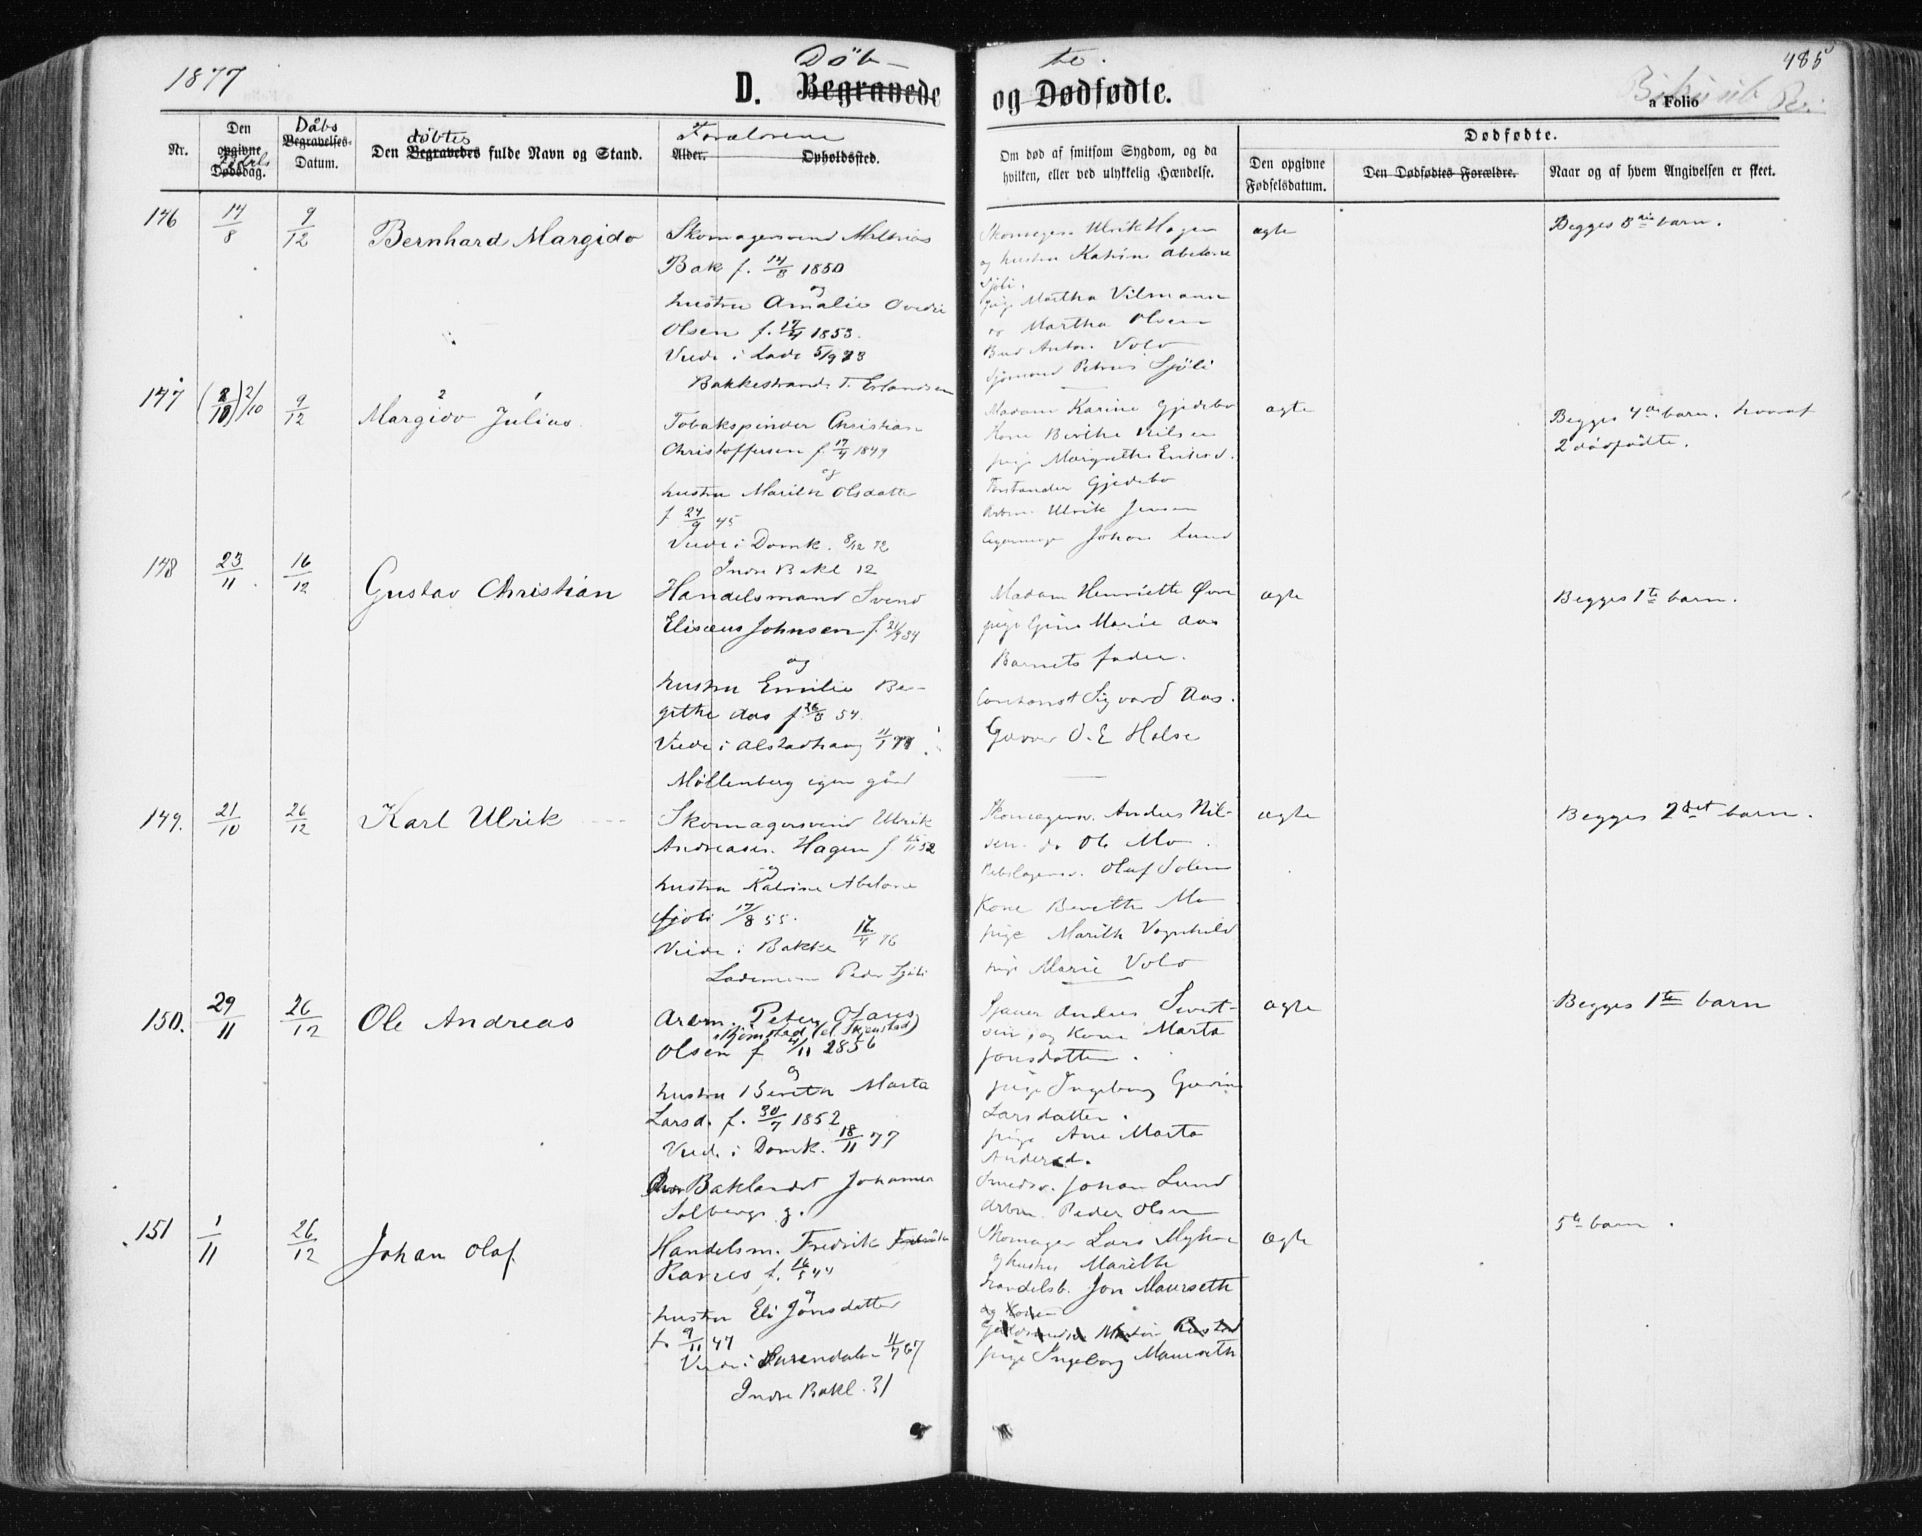 1877
Döb-
te.
485
D. Begravede
og Dødfødte.
a Folio
Dåbs
döbtes
Forældrene
Nr.
Den opgivne Dødsdag.
Begravelses-Datum.
Den Begravedes fulde Navn og Stand.
Alder.
Opholdssted.
Om død af smitsom Sygdom, og da hvilken, eller ved ulykkelig Hændelse.
Dødfødte.
Den opgivne Fødselsdatum.
Den Dødfødtes Forældre.
Naar og af hvem Angivelsen er skeet.
146
14/8
9/12
Bernhard Margido
Skomagersvend Mathias
Bak f. 14/8 1850
og
hustru Amalie
Olsen f. 17/4 1853.
Viede i Lade 5/9 73
Bakkestrand T. Erlandsen
Skomagers. Ulrik Hagen
og hustru Katrine Abelone
Sjöli.
pige Martha Vilmann
og Martha Olsen
Anton Volo
Sjömand Petrus Sjöli
ægte
Begges barn.
147
2/10
9/12
2 1
Margido Julius
Tobakspinder Christian
Christoffersen f. 17/4 1849
og
hustru Marith Olsdatter
f 24/9 45
Viede i Domk. 8/12 72
Indre Bakl 12
Madam Karine Gjedebo
Kone Berithe Nilsen
pige Margrethe
Forstander Gjedebo
Arbm. Ulrik Jensen
Johan Lund
ægte
Begges 4de barn. hvoraf
2 dödfödte.
148
23/11
16/12
Gustav Christian
Handelsmand Svend
Elisæus Johnsen f.
og
hustru Emilie Be-
githe Aas f. 26/8 54.
Viede i Alstadhaug
Möllenberg egen gård
Madam Henriette
pige Gine Marie Aas
Barnets fader.
Sigvard Aas.
Garver O. E Halse
ægte
Begges 1te barn.
149.
21/10
26/12
Karl Ulrik
Skomagersvend Ulrik
Andreasen Hagen f
og
hustru Katrine Abelone
Sjöli 17/8 55.
Viede i Bakke 17/4 76
Peder Sjöli
Skomagersv. Anders Nil-
sen. do Ole Mo.
Olaf Solem
Kone Berethe Mo
pige Marith Vognhild
pige Marie Volo
ægte
Begges 2det barn.
150.
29/11
26/12
Ole Andreas
Arbm. Peter Olaus
Skjemstad (el Skjenstad)
Olsen f 4/11 1856
og
hustru Bereta Marta
Larsd. f. 30/7 1852
Viede i Domk. 18/11 77
Baklandet Johannes
Solbergs g.
Sjauer Anders Sivert-
sen og kone Marta
Jonsdatter.
pige Ingeborg
Larsdatter.
pige Ane Marta
Andersd.
Smedsv. Johan Lund
Arbm. Peder Olsen
ægte
Begges 1te barn
151
1/11
26/12
Johan Olaf
Handelsm. Fredrik
Ranes f. 16/5 44
og
hustru Eli Jonsdatter
f. 9/11 47
Viede i Surendalen 11/7 67
Indre Bakl. 31
Skomager Lars
og hustru Marithe
Handelsb. Jon Maurseth
og kone
pige Ingeborg Maurseth
ægte
5te barn.